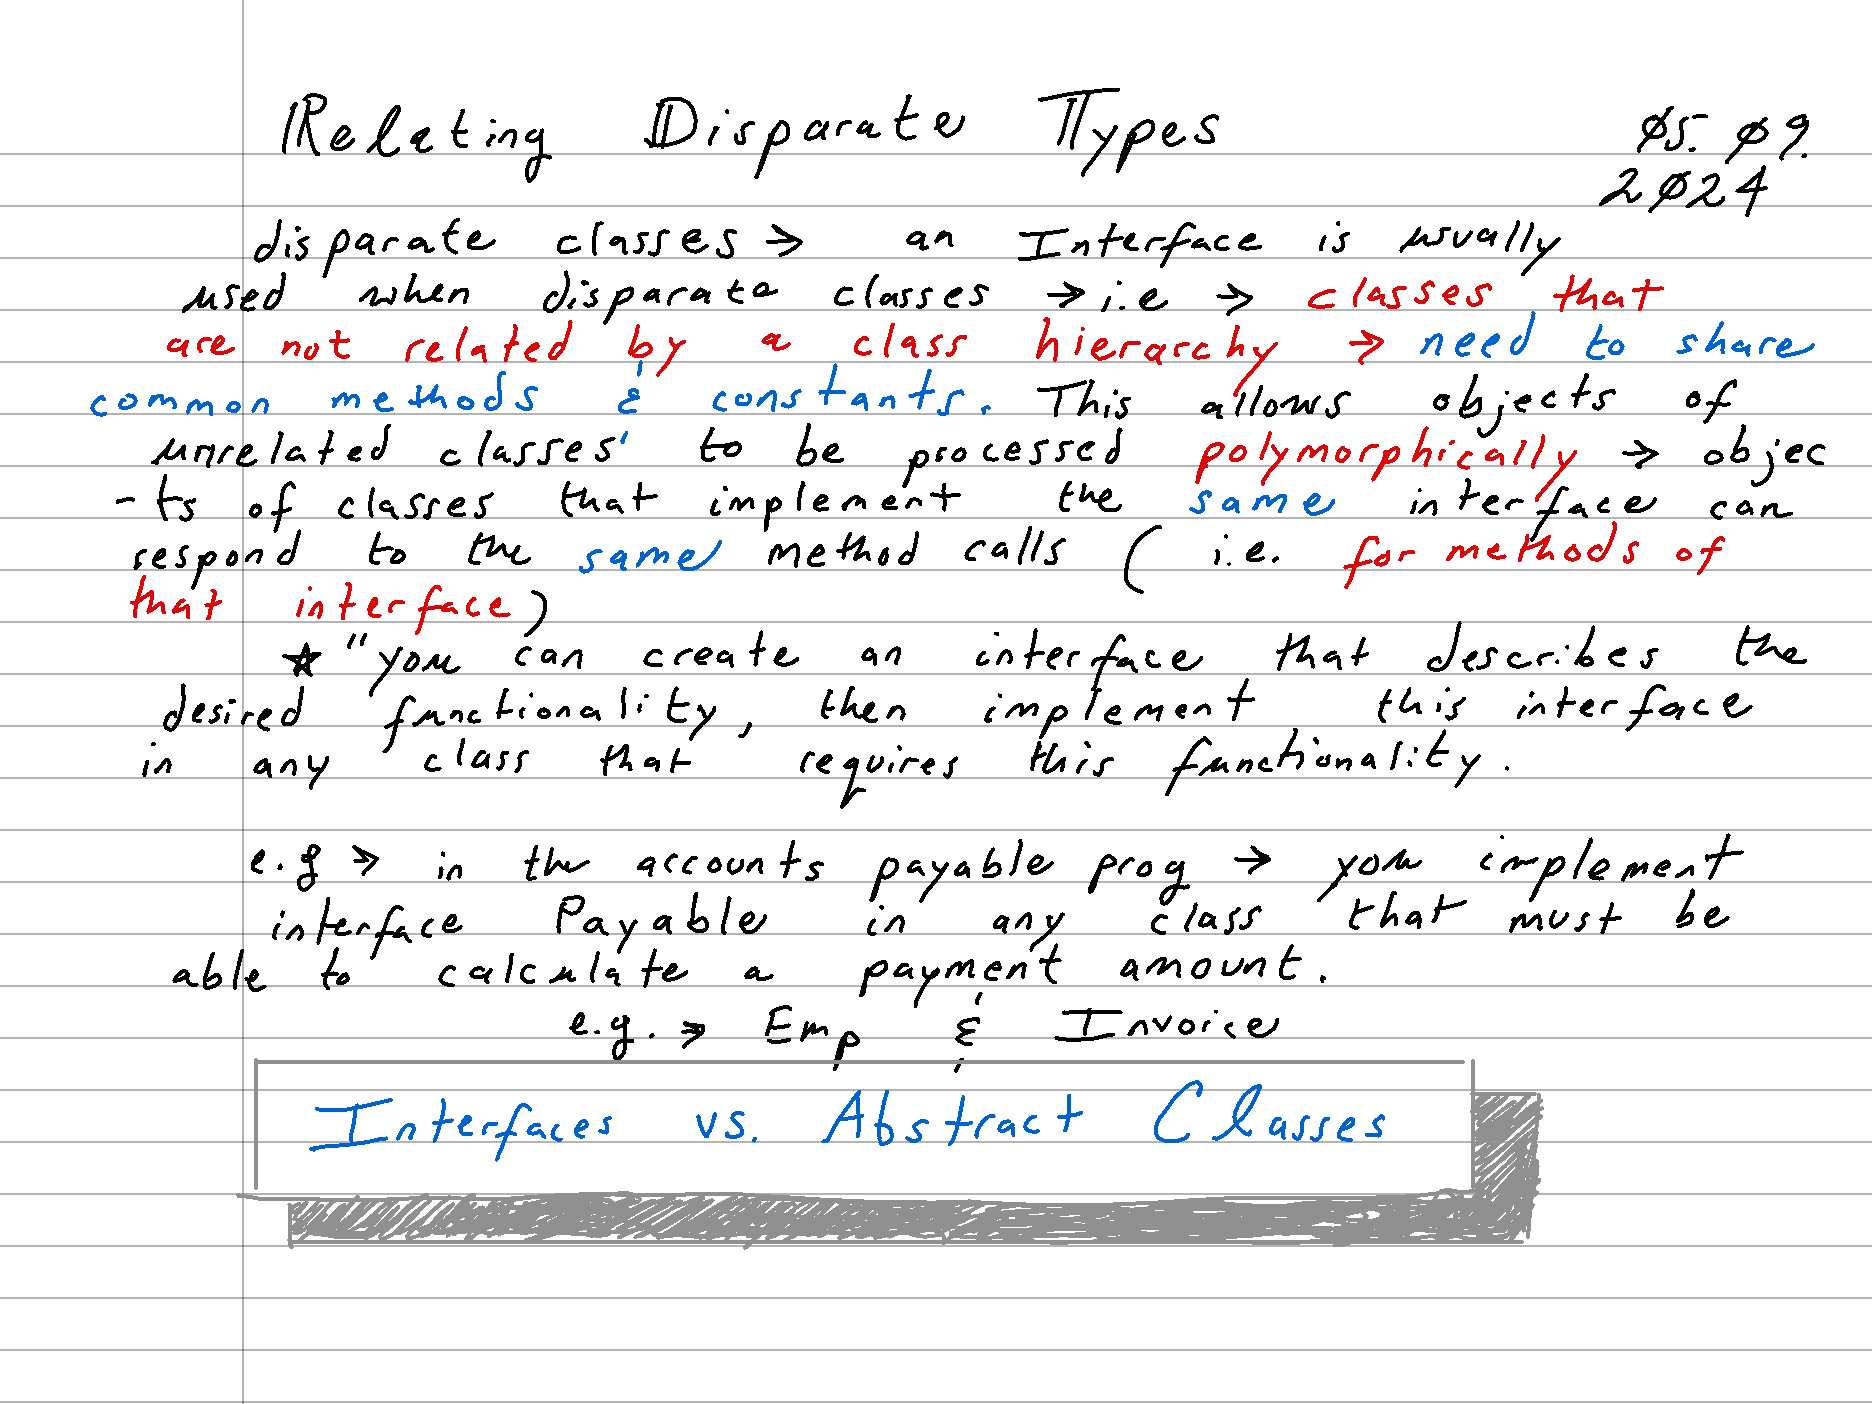 Relating Disparate Types
05.09.
2024
disparate classes → an Interface is usually
used when disparate classes → i.e → classes that
are not related by a class hierarchy → need to share
common methods & constants. This allows objects of
unrelated classes' to be processed polymorphically → objec
-ts of classes that implement the same interface can
respond to the same method calls ( i.e. for methods of
that interface)
☆ "you can create an interface that describes the
desired functionality, then implement this interface
in any class that requires this functionality.
e.g → in the accounts payable prog → you implement
interface Payable in any class that must be
able to calculate a payment amount.
e.g. → Emp & Invoice
Interfaces vs. Abstract Classes